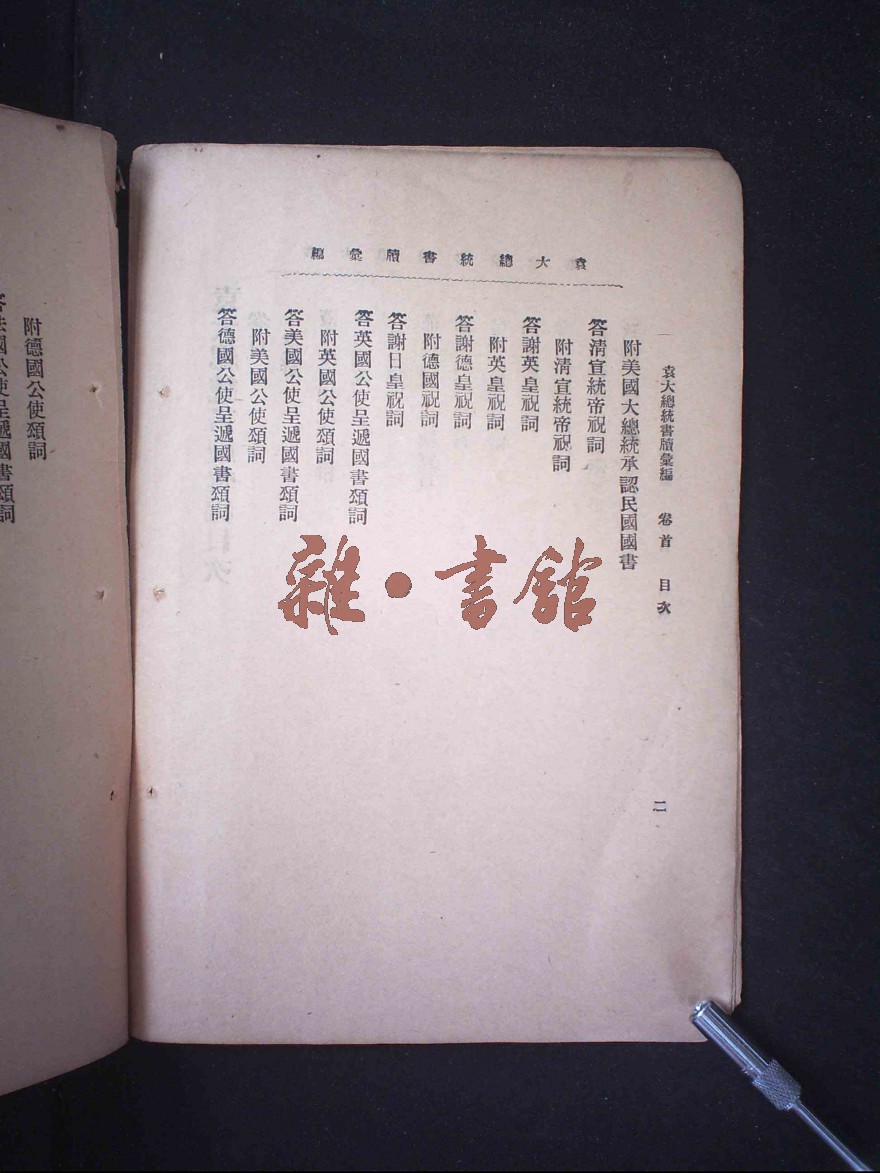 袁大總統書牘彙編
袁大總統書牘彙編 卷首 目次
二
附美國大總統承認民國國書
答清宣統帝祝詞
附清宣統帝祝詞
答謝英皇祝詞
附英皇祝詞
答謝德皇祝詞
附德國祝詞
答謝日皇祝詞
答英國公使呈遞國書頌詞
附英國公使頌詞
答美國公使呈遞國書頌詞
附美國公使頌詞
答德國公使呈遞國書頌詞
附德國公使頌詞
答法國公使呈遞國書頌詞
雜·書館